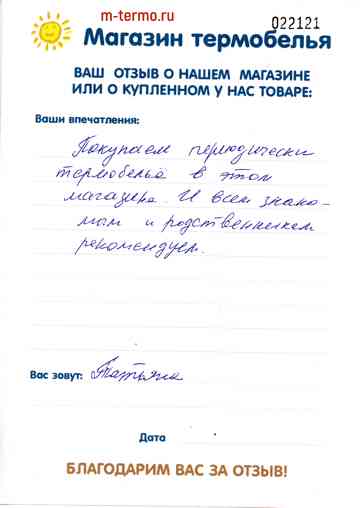 m-termo.ru
022121
Магазин термобелья
ВАШ ОТЗЫВ О НАШЕМ МАГАЗИНЕ
ИЛИ О КУПЛЕННОМ У НАС ТОВАРЕ:
Ваши впечатления:
Покупаем периодически
термобельё в этом
магазине. И всем знако-
мым и родственникам
рекомендуем.
Вас зовут: Татьяна
Дата
БЛАГОДАРИМ ВАС ЗА ОТЗЫВ!